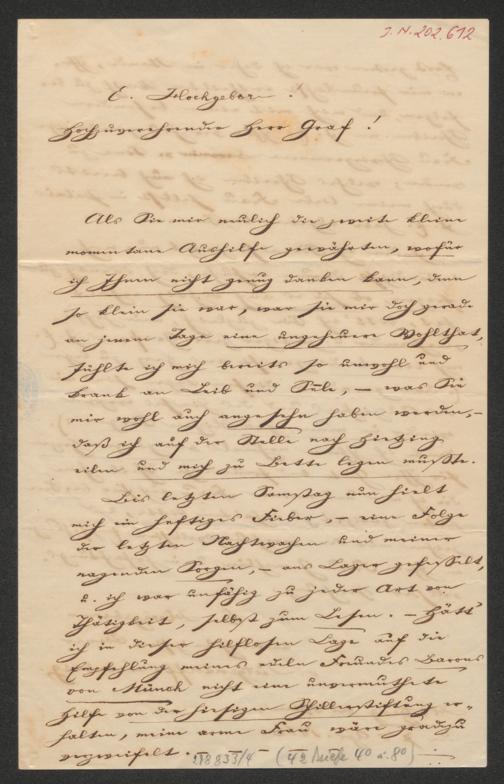 J. N. 202.612
E. Hochgeboren.
Hochzuverehrender Herr Graf!
Als Sie mir neulich die zweite kleine
momentane Aushilfe gewährten, wofür
ich Ihnen nicht genug danken kann, denn
so klein sie war, war sie mir doch gerade
an jenem Tage eine ungeheuere Wohlthat,
fühlte ich mich bereits so unwohl und
krank an Leib und Sele, – was Sie
mir wohl auch angesehn haben werden, –
daß ich auf der Stelle nach Hietzing
eilen und mich zu Bette legen mußte.
Bis letzten Samstag nun hielt
mich ein heftiges Fieber, – eine Folge
der letzten Nachtwachen und meiner
nagenden Sorgen, – ans Lager gefesselt,
u. ich war unfähig zu jeder Art von
Thätigkeit, selbst zum Lesen. – Hätt'
ich in dieser hilflosen Lage auf die
Empfehlung meines edeln Freundes Barons
von Münch nicht eine unvermuthete
Hilfe von der hiesigen Schillerstiftung er-
halten, meine arme Frau wäre geradezu
verzweifelt. –
218833/4 (42 Briefe 40 à 80)